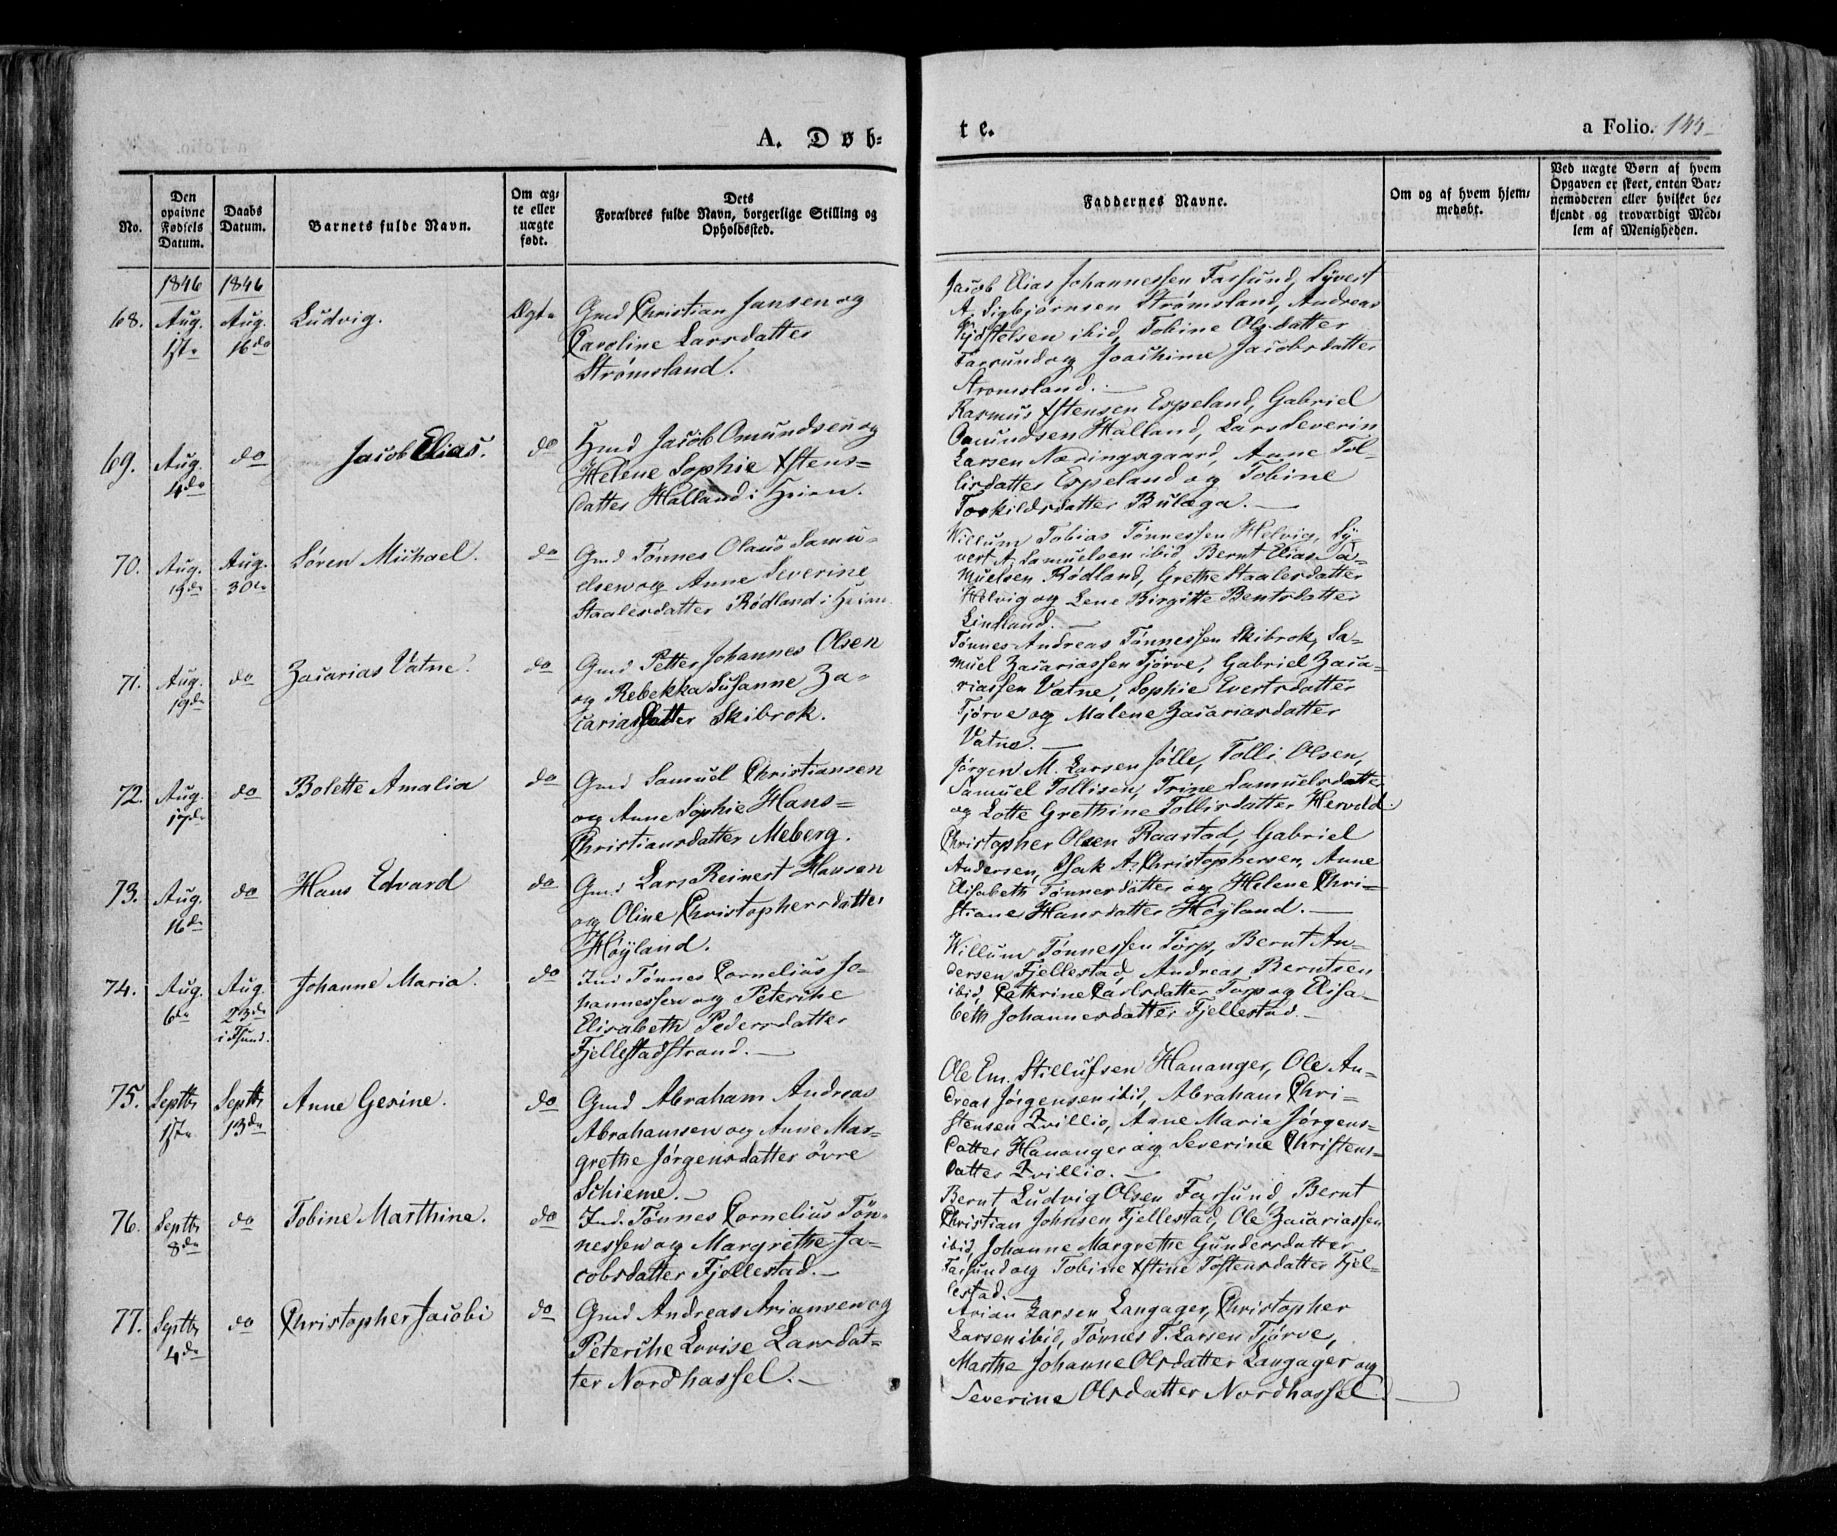 A. Døb-
te.
a Folio. 143
No.
Den
opgivne
Fødsels
Datum.
Daabs
Datum.
Barnets fulde Navn.
Om æg-
te eller
uægte
født.
Dets
Forældres fulde Navn, borgerlige Stilling og
Opholdssted.
Faddernes Navne.
Om og af hvem hjem-
medøbt.
Ved uægte Børn af hvem
Opgaven er skeet, enten Bar-
nemoderen eller hvilket be-
kjendt og troværdigt Med-
lem af Menigheden.
1846 1846
68. Aug. 1ste
Aug. 16de
Ludvig.
Ægte
Gmd Christian Jansen og
Caroline Larsdatter
Strømsland.
Jacob Elias Johannessen Farsund, Syvert
A. Sigbjørnsen Strømsland, Andreas
ibid, Tobine Olsdatter
Farsund og Joachime Jacobsdatter
Strømsland.
69. Aug. 4de
do
Jacob Elias.
do
Hmd Jacob Omundsen og
Helene Sophie Østens-
datter Halland i Heien.
Rasmus Østensen Espeland, Gabriel
Omundsen Halland, Lars Severin
Larsen Næringsgaard, Anne Tol-
lisdatter Espeland og Tobine
Torkildsdatter Bulæga.
70. Aug. 19de
Aug. 30te
Søren Michael.
do
Gmd Tønnes Olaus Samu-
elsen og Anne Severine
Staalesdatter Rødland i Heien
Willum Tobias Tønnessen Helvig, Sy-
vert A. Samuelsen ibid, Bernt Elias Sa-
muelsen Rødland, Grethe Staalesdatter
Helvig og Lene Birgitte Bentsdatter
Lindland.
71. Aug. 19de
do
Zacarias Vatne.
do
Gmd Petter Johannes Olsen
og Rebekka Susanne Za-
cariasdatter Skibrok.
Tønnes Andreas Tønnessen Skibrok, Sa-
muel Zacariassen Tjørve, Gabriel Zaca-
riassen Vatne, Sophie Evertsdatter
Tjørve og Malene Zacariasdatter
Vatne.
72. Aug. 17de
do
Bolette Amalia
do
Gmd Samuel Christiansen
og Anne Sophie Hans-
Christiansdatter Meberg.
Jørgen M. Larsen Jølle, Tolli Olsen,
Samuel Tollisen, Trine Samuelsdatter
og Lotte Grethine Tollisdatter Hervold.
73. Aug. 16de
do
Hans Edvard
do
Gmd Lars Reinert Hansen
og Oline Christophersdatter
Høyland.
Christopher Olsen Raastad, Gabriel
Andersen, Isak A. Christophersen, Anne
Elisabeth Tønnesdatter og Helene Chri-
stiane Hansdatter Høyland.
74. Aug. 6te
Aug. 23de
i Fsund.
Johanne Maria.
do
Ind Tønnes Cornelius Jo-
hannessen og Peteriche
Elisabeth Pedersdatter
Fjellestadstrand.
Willum Tønnessen Torp, Bernt An-
dersen Fjellestad, Andreas Berntsen
ibid, Cathrine Carlsdatter Torp og Elisa-
beth Johannesdatter Fjellestad.
75. Septbr 1ste
Septbr 13de
Anne Gesine.
do
Gmd Abraham Andreas
Abrahamsen og Anne Mar-
grethe Jørgensdatter øvre
Schieme.
Ole Em. Stillufsen Hananger, Ole An-
dreas Jørgensen ibid, Abraham Chri-
stensen Qvillio, Anne Marie Jørgens-
datter Hananger og Severine Christens-
datter Qvillio.
76. Septbr 8de
do
Tobine Marthine.
do
Ind. Tønnes Cornelius Tøn-
nessen og Margrethe Ja-
cobsdatter Fjellestad.
Bernt Ludvig Olsen Farsund, Bernt
Christian Johnsen Fjellestad, Ole Zacariassen
ibid, Johanne Margrethe Gundersdatter
Farsund og Tobine Østine Tostensdatter Fjel-
lestad.
77. Septbr 4de
do
Christopher Jacobi
do
Gmd Andreas Ariansen og
Peteriche Lovise Larsdat-
ter Nordhassel.
Arian Larsen Langager, Christopher
Larsen ibid, Tønnes T. Larsen Tjørve,
Marthe Johanne Olsdatter Langager og
Severine Olsdatter Nordhassel.